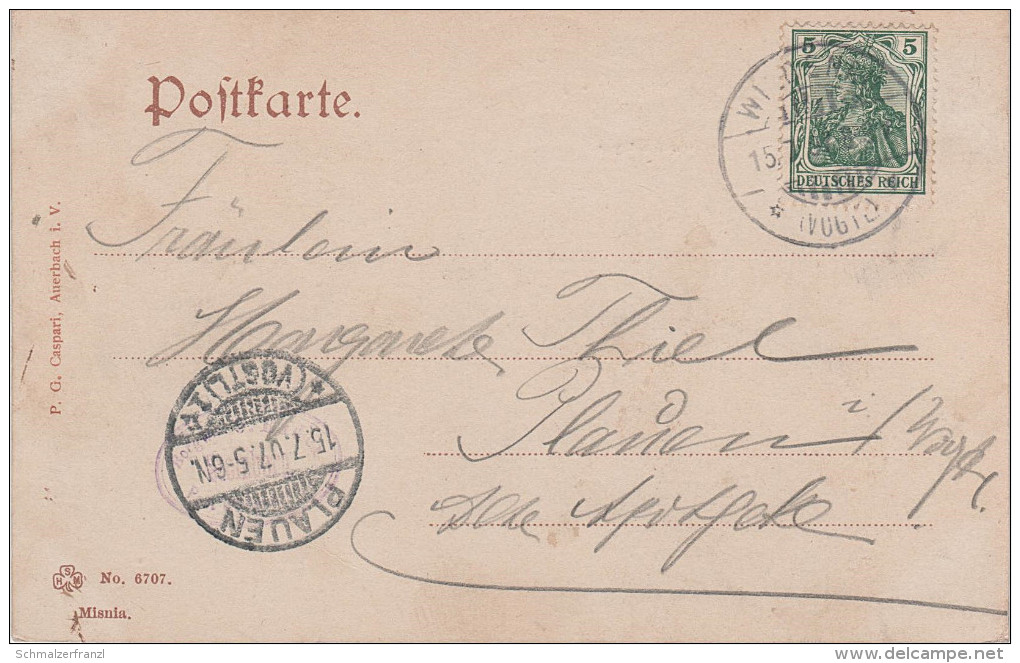 Postkarte.
5 5
DEUTSCHES REICH
15.
(VOGTL)
P. G. Caspari, Auerbach i. V.
Fräulein
Margarete Thiel
Plauen i/Vogtl.
Alte Apotheke
PLAUEN
15.7.07.5-6N.
(VOGTL)1
HSM
No. 6707.
Misnia.
Schmalzerfranzl
delcampe.net